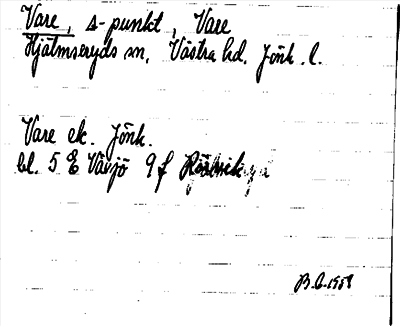 Vare, s-punkt, Vare
Hjälmseryds sn, Västra hd. Jönk. l.
Vare ek. Jönk.
bl. 5 E Växjö 9 f